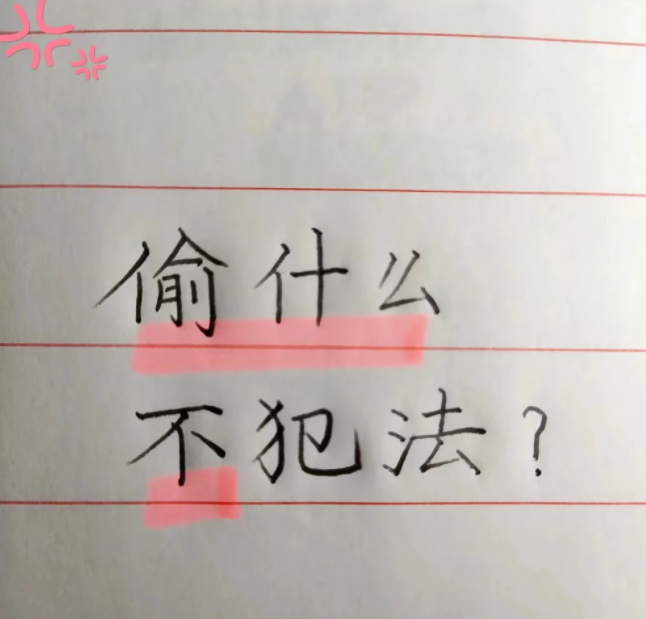 偷什么
不犯法?